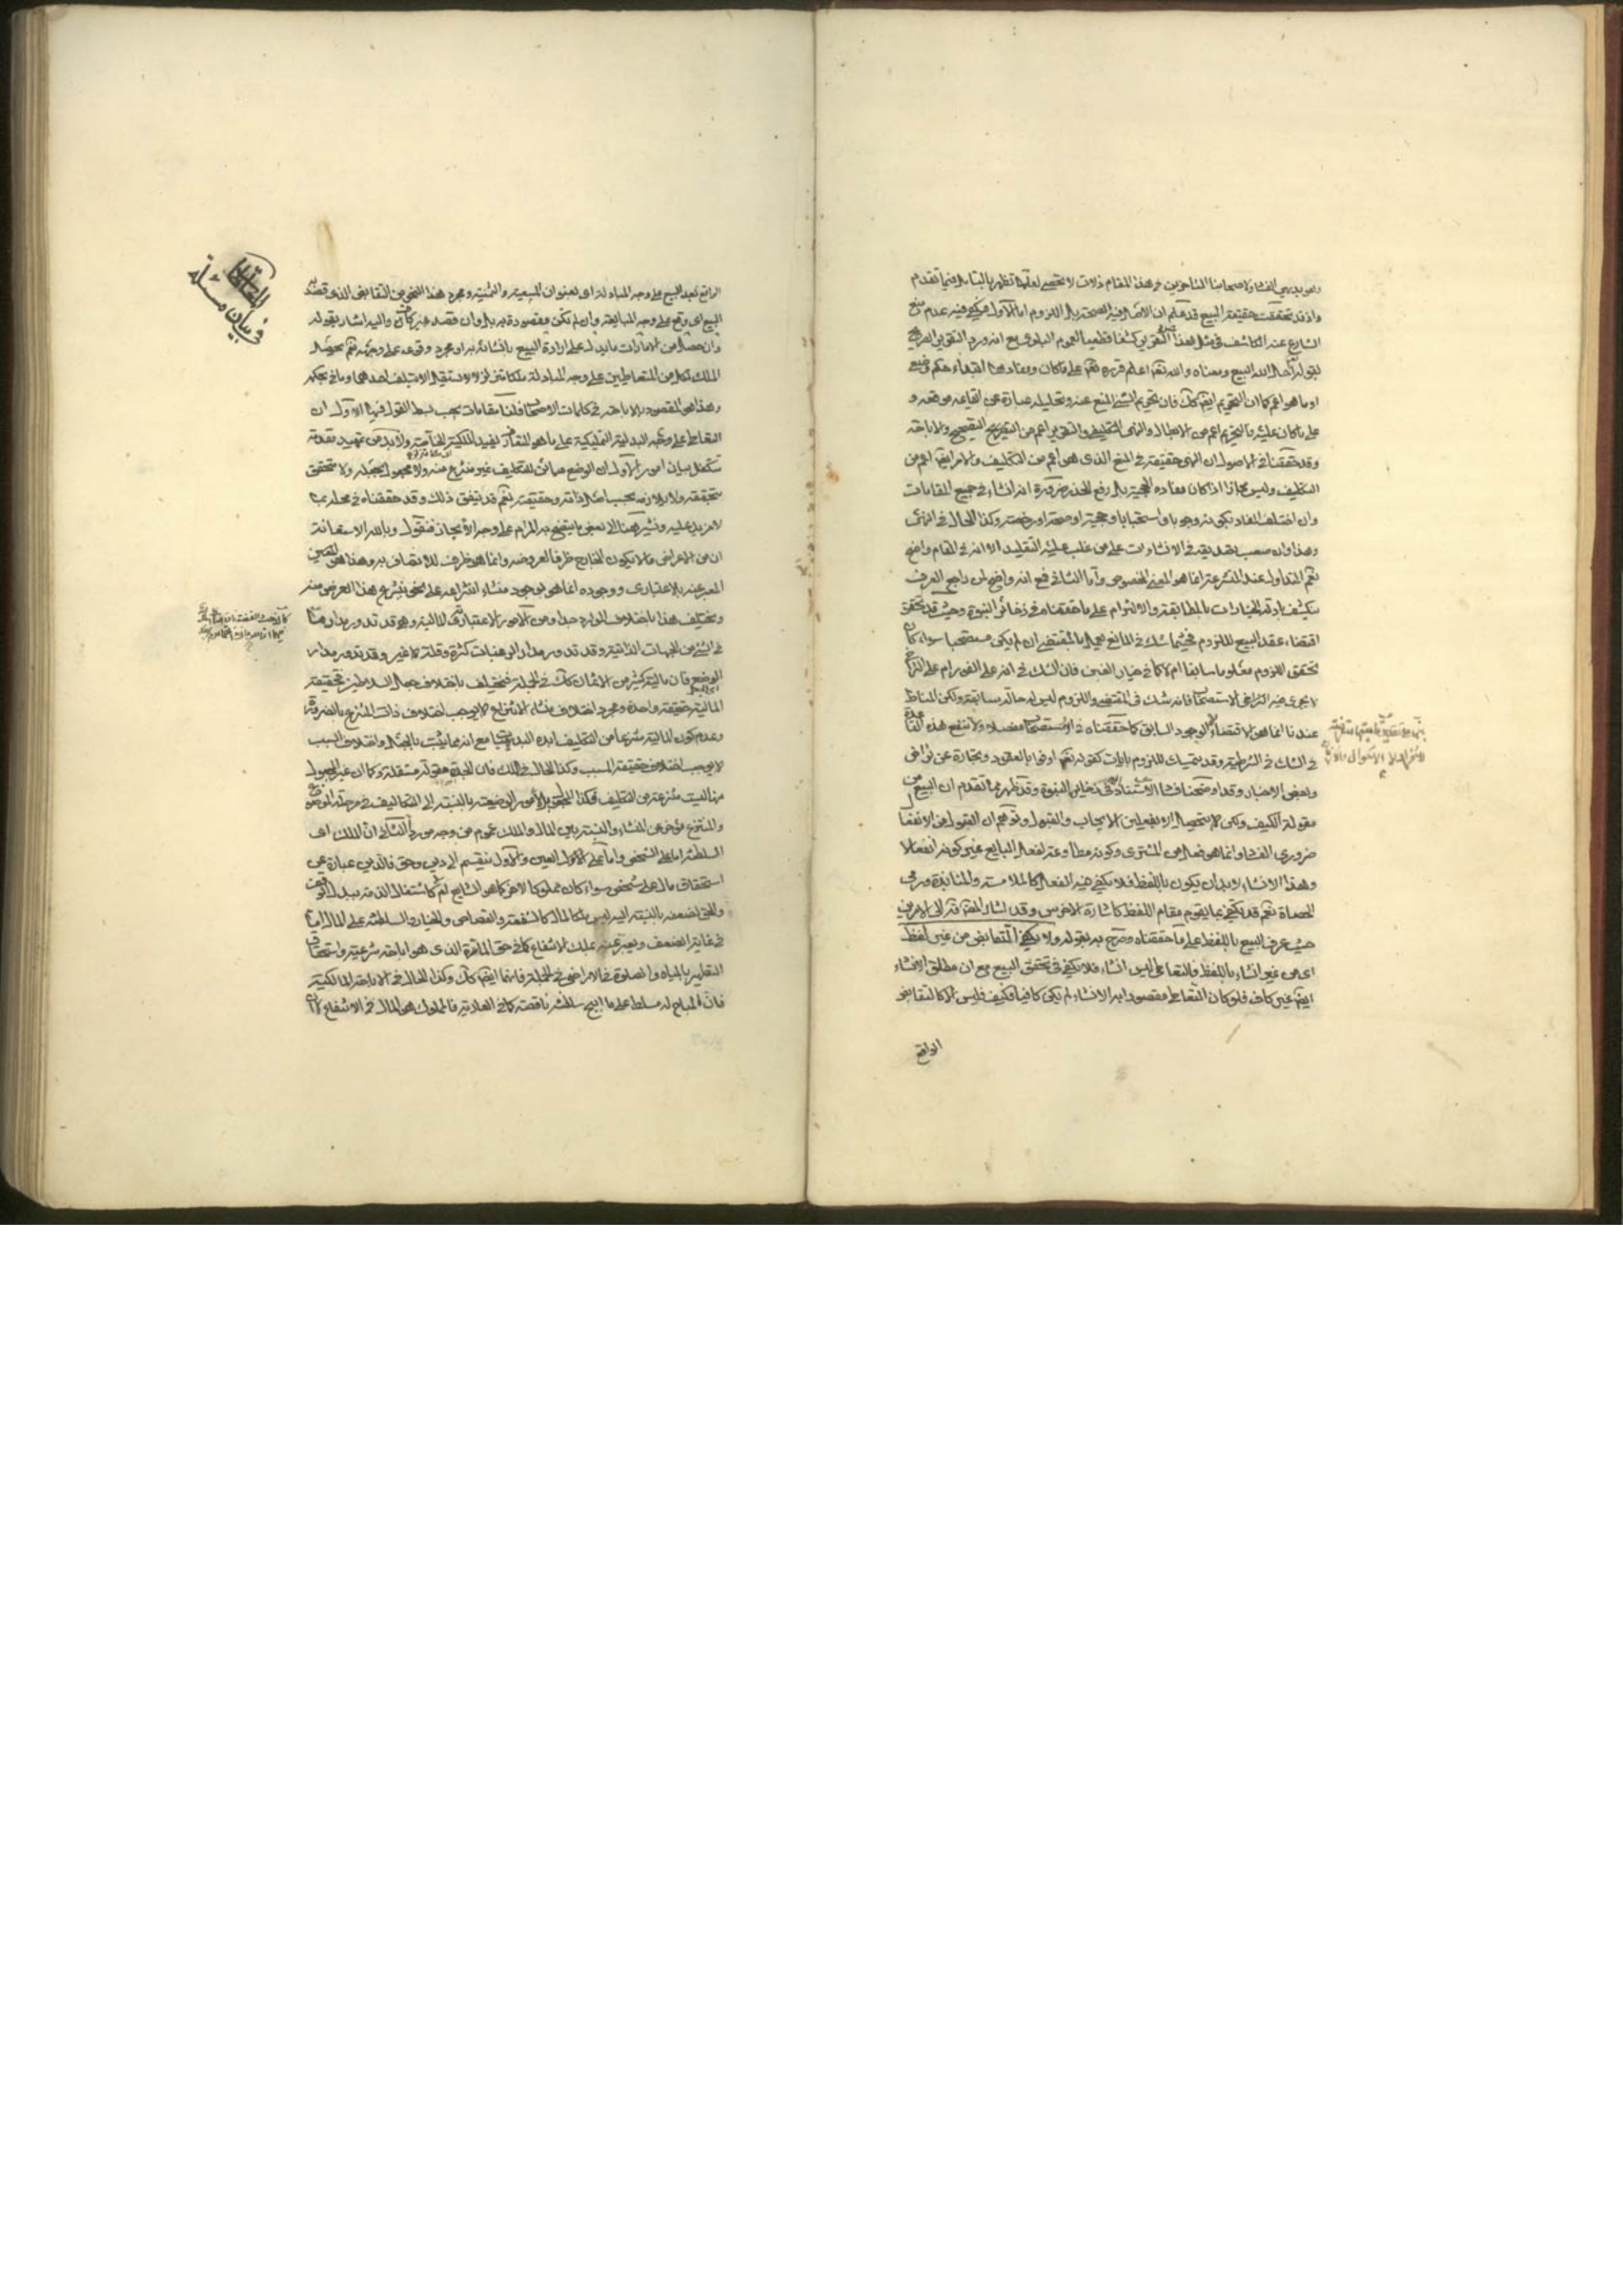 وهو بديهي الفساد ولاصحابنا المتأخرين في هذا المقام زلات لا تحصى لعلها تظهر بالتأمل فيما تقدم
واذ قد تحققت حقيقة البيع قد علم ان الاصل فيه الصحة بل اللزوم اما الاول فيكفي فيه عدم منع
الشارع عنه الكاشف في مثل هذا التقرير كشفا قطعيا لعموم البلوى مع انه ورد التقرير الصريح
بقوله احل الله البيع ومعناه والله تعالى اعلم قرره تعالى على ما كان ومفاد هذا امضاء حكم وضعي
او ما هو اعم كما ان التحريم ايضا كك فان تحريم الشيء المنع عنه وتحليله عبارة عن ايقاعه موقعه و
على ما كان عليه فالتحريم اعم من الابطال والنهي التكليفي والتقرير اعم من التصحيح والاباحة
وقد حققنا في الاصول ان النهي حقيقة في المنع الذي هو اعم من التكليف والامر ايضا اعم من
التكليف وليس مجازا اذا كان مفاده الحجية بل رفع الحذر ضرورة انه انشاء في جميع المقامات
وان اختلف المفاد بكونه وجوبا واستحبابا وحجية او صحة او رخصة وكذا الحال في النهي
وهذا وان صعب تصديقه في الانشاءات على من غلب عليه التقليد الا انه في المقام واضح
نعم المتداول عند المتشرعة انما هو المعنى الخصوص واما الثاني فمع انه واضح لمن راجع العرف
يكشف ادلة الخيارات بالمطابقة والالتزام على ما حققناه في ذخائر النبوة وحيث قد تحقق
اقتضاء عقد البيع للزوم فحيثما شك في المانع يعمل بالمقتضى ان لم يكن مستصحبا سواء كان
تحقق اللزوم معلوما سابقا ام لا كما في خيار الغبن فان الشك في انه على الفور ام على التراخي
لا يجري فيه الاستصحاب فانه شك في المقتضي واللزوم ليس له حالة سابقة ولكن المناط
عندنا انما هو الاقتضاء لا الوجود السابق كما حققناه في الاستصحاب مفصلا ولا تنفع هذه القاعدة
في الشك في الشرطية وقد يتمسك للزوم بآيات كقوله تعالى اوفوا بالعقود وتجارة عن تراض
وبعض الاخبار وقد اوضحنا فساد الاستناد في ذخائر النبوة وقد ظهر مما تقدم ان البيع من
مقولة الكيف ولكن لا يتحصل الا بفعلين الايجاب والقبول وتوهم ان القبول من الانفعال
ضروري الفساد وانما هو فعل من المشتري وكونه مطاوعة لفعل البايع غير كونه انفعالا
وهذا الانشاء لا بد ان يكون باللفظ فلا يكفي فيه الفعل كالملامسة والمنابذة ورمي
الحصاة نعم قد يكتفي بما يقوم مقام اللفظ كاشارة الاخرس وقد اشار المحقق قده الى الامرين
حيث عرف البيع باللفظ على ما حققناه وصرح به بقوله ولا يكفي التقابض من غير لفظ
اي من غير انشاء باللفظ فالتعاطي ليس انشاء فلا يكفي في تحقق البيع مع ان مطلق الانشاء
ايضا غير كاف فلو كان التعاطي مقصودا به الانشاء لم يكن كافيا فكيف فليس الا كالتقابض
الواقع
في بيان مسئلة
المعاطاة
الواقع بعد البيع على وجه المبادلة اي بعنوان المبيعية والثمنية ومجرد هذا النحو من التقابض الذي قصد به
البيع اي وقع على وجه المبايعة وان لم تكن مقصودة به بل وان قصد غير كاف واليه اشار بقوله
وان حصل من الامارات ما يدل على ارادة البيع بانشائه به او مجرد وقوعه على وجهه نعم يحصل
الملك لكل من المتعاطيين على وجه المبادلة ملكا متزلزلا لا يستقر الا بتلف احدهما وما في بحكمه
وهذا هو المقصود بالاباحة في كلمات الاصحاب فلنا مقامات يجب بسط القول فيها الاول ان
التعاطي على وجه البدلية التمليكية على ما هو المتعارف يفيد الملكية الخاصة ولا بد من تمهيد مقدمة
تتكفل ببيان امور الاول ان الوضع مباين للتكليف غير منتزع منه ولا مجعول بجعله ولا متحقق
بتحققه ولا يلازمه بحسب اصل ذاته وحقيقته نعم قد يتفق ذلك وقد حققناه في محله بما
لا مزيد عليه ونشير هنا الى بعض ما يتضح به المرام على وجه الايجاز فنقول وبالله الاستعانة
ان من الاعراض ما لا يكون الخارج ظرفا لعروضه وانما هو ظرف للاتصاف به وهذا هو المعنى
المعبر عنه بالاعتباري ووجوده انما هو بوجود منشاء انتزاعه على نحو ينتزع هذا العرض منه
ويختلف هذا باختلاف الموارد جدا ومن الامور الاعتبارية المالية وهو قد تدور مدار ما
في الشيء من الجهات الذاتية وقد تدور مدار الرغبات كثرة وقلة لا غير وقد تدور مدار
الوضع فان مالية كثير من الاثمان كك في الجملة فيختلف باختلاف جعل السلاطين فحقيقة
المالية حقيقة واحدة ومجرد اختلاف منشاء الانتزاع لا يوجب اختلاف ذات المنتزع بالضرورة
وعدم كون المالية منتزعا من التكليف ابده البديهيات مع انه ربما يثبت بالجعل واختلاف السبب
لا يوجب اختلاف حقيقة المسبب وكذا الحال في الملك فان الجدة مقولة مستقلة وكما ان غير المجعول
منها ليست منتزعة من التكليف فكذا المجعول الامور الوضعية بالنسبة الى التكاليف في مرحلة الموضوع
والمنتزع مؤخر عن المنشاء والنسبة بين المال والملك عموم من وجه موردا الثاني ان الملك اي
السلطنة اما على الشخص واما على المال العين والاول ينقسم الى دين وحق فالدين عبارة عن
استحقاق مال على شخص سواء كان مملوكا لاخر كما هو الشايع ام لا كاشتغال الذمة ببدل الوقف
والحق لضعفه بالنسبة اليه ليس ملكا لمال كالشفعة والقصاص والخيار والسلطنة على المال اما
في غاية الضعف ويعبر عنه بملك الانتفاع كما في حق المارة الذي هو اباحة شرعية واستحقاق
التطهير بالمياه والصلوة في الاراضي في الجملة فانها ايضا كك وكذا الحال في الاباحة المالكية
فان المباح له مسلط على ما ابيح سلطنة ناقصة كما في العارية فالمملوك هو المال في الانتفاع